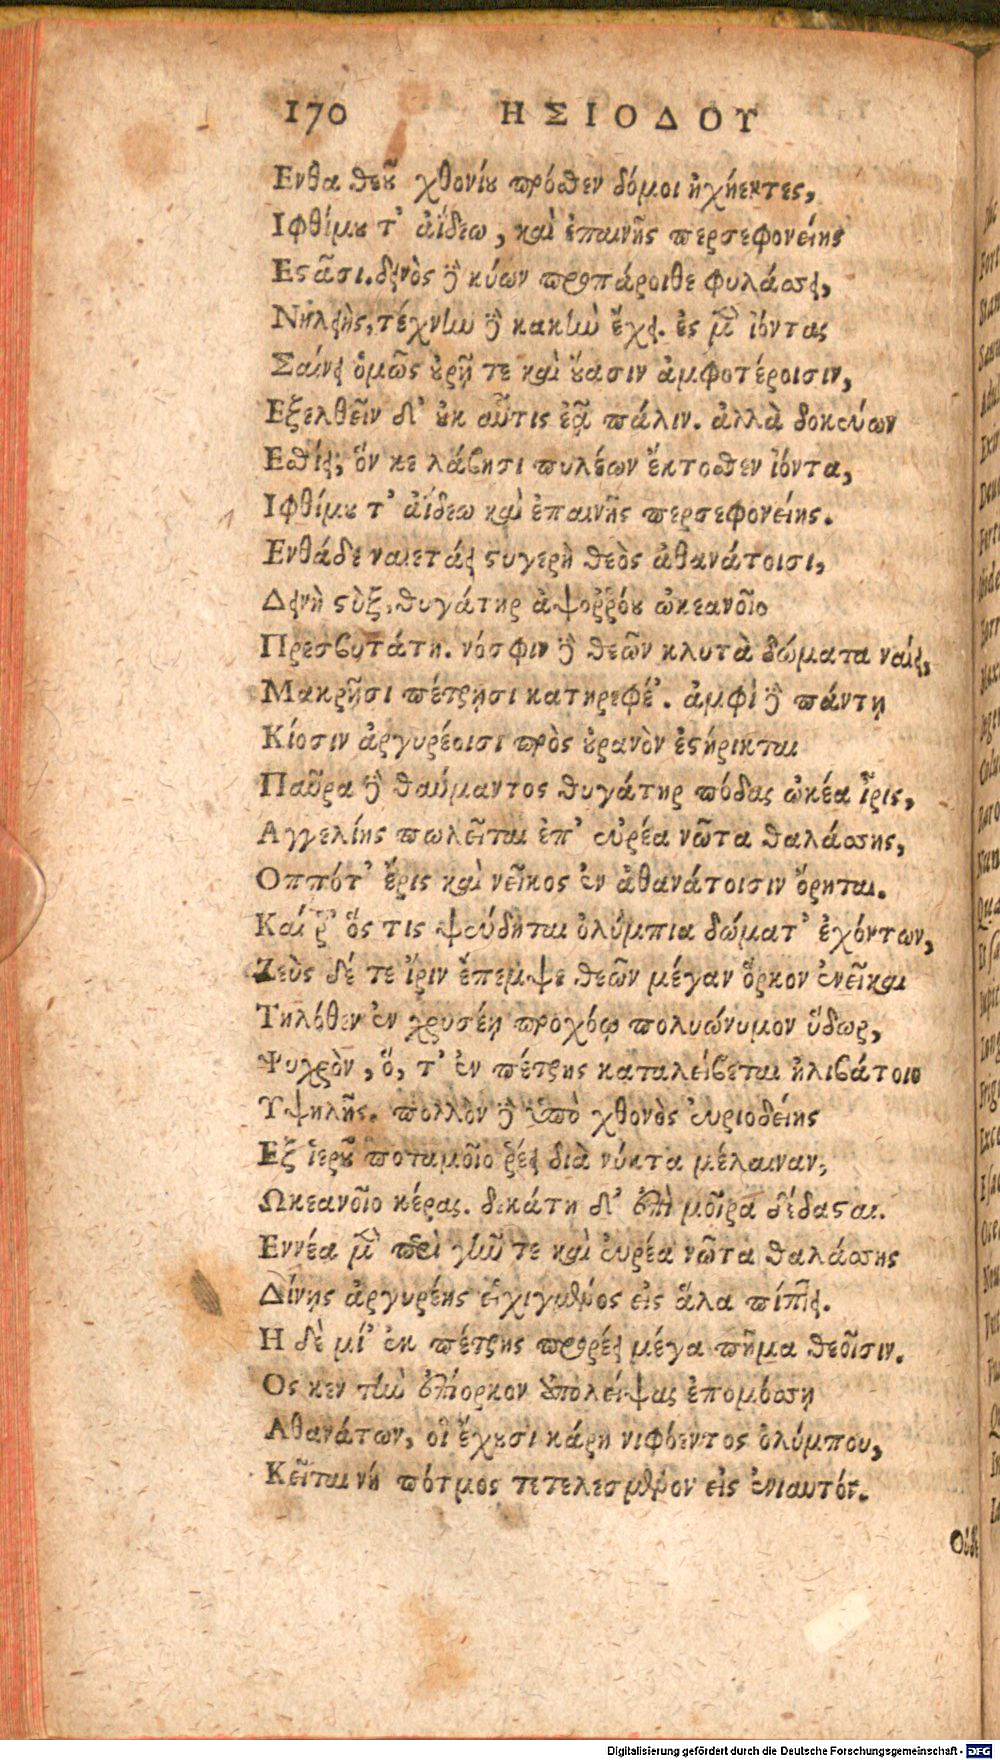 170 ΗΣΙΟΔΟΥ
Ενθα θεοῦ χθονίου πρόσθεν δόμοι ἠχήεντες,
Ιφθίμου τ' ἀΐδεω, καὶ ἐπαινῆς περσεφονείης
Εστᾶσι. δεινὸς δὲ κύων προπάροιθε φυλάσσει,
Νηλειὴς, τέχνην δὲ κακὴν ἔχει. ἐς μὲν ἰόντας
Σαίνει ὁμῶς οὐρῇ τε καὶ οὔασιν ἀμφοτέροισιν,
Εξελθεῖν δ' οὐκ αὖτις ἐᾷ πάλιν. ἀλλὰ δοκεύων
Εσθίει, ὅν κε λάβησι πυλέων ἔκτοσθεν ἰόντα,
Ιφθίμου τ' ἀΐδεω καὶ ἐπαινῆς περσεφονείης.
Ενθάδε ναιετάει στυγερὴ θεὸς ἀθανάτοισι,
Δεινὴ στὺξ, θυγάτηρ ἀψοῤῥόου ὠκεανοῖο
Πρεσβυτάτη. νόσφιν δὲ θεῶν κλυτὰ δώματα ναίει,
Μακρῇσι πέτρῃσι κατηρεφέ'. ἀμφὶ δὲ πάντη
Κίοσιν ἀργυρέοισι πρὸς οὐρανὸν ἐστήρικται
Παῦρα δὲ θαύμαντος θυγάτηρ πόδας ὠκέα ἶρις,
Αγγελίης πωλεῖται ἐπ' εὐρέα νῶτα θαλάσσης,
Οππότ' ἔρις καὶ νεῖκος ἐν ἀθανάτοισιν ὄρηται.
Καί ῥ' ὅς τις ψεύδηται ὀλύμπια δώματ' ἐχόντων,
Ζεὺς δέ τε ἶριν ἔπεμψε θεῶν μέγαν ὅρκον ἐνεῖκαι
Τηλόθεν ἐν χρυσέῃ προχόῳ πολυώνυμον ὕδωρ,
Ψυχρὸν, ὅ, τ' ἐν πέτρης καταλείβεται ἠλιβάτοιο
Υψηλῆς. πολλὸν δὲ ὑπὸ χθονὸς εὐριοδείης
Εξ ἱεροῦ ποταμοῖο ῥέει διὰ νύκτα μέλαιναν,
Ωκεανοῖο κέρας. δεκάτη δ' ἐπὶ μοῖρα δέδασται.
Εννέα μὲν περὶ γῆν τε καὶ εὐρέα νῶτα θαλάσσης
Δίνης ἀργυρέης εἱλιγμένος εἰς ἅλα πίπτει.
Η δὲ μί' ἐκ πέτρης προρέει μέγα πῆμα θεοῖσιν.
Ος κεν τὴν ἐπίορκον ἀπολείψας ἐπομόσση
Αθανάτων, οἳ ἔχουσι κάρη νιφόεντος ὀλύμπου,
Κεῖται νή πότμος τετελεσμένον εἰς ἐνιαυτόν.
Οὐδὲ
Digitalisierung gefördert durch die Deutsche Forschungsgemeinschaft - DFG